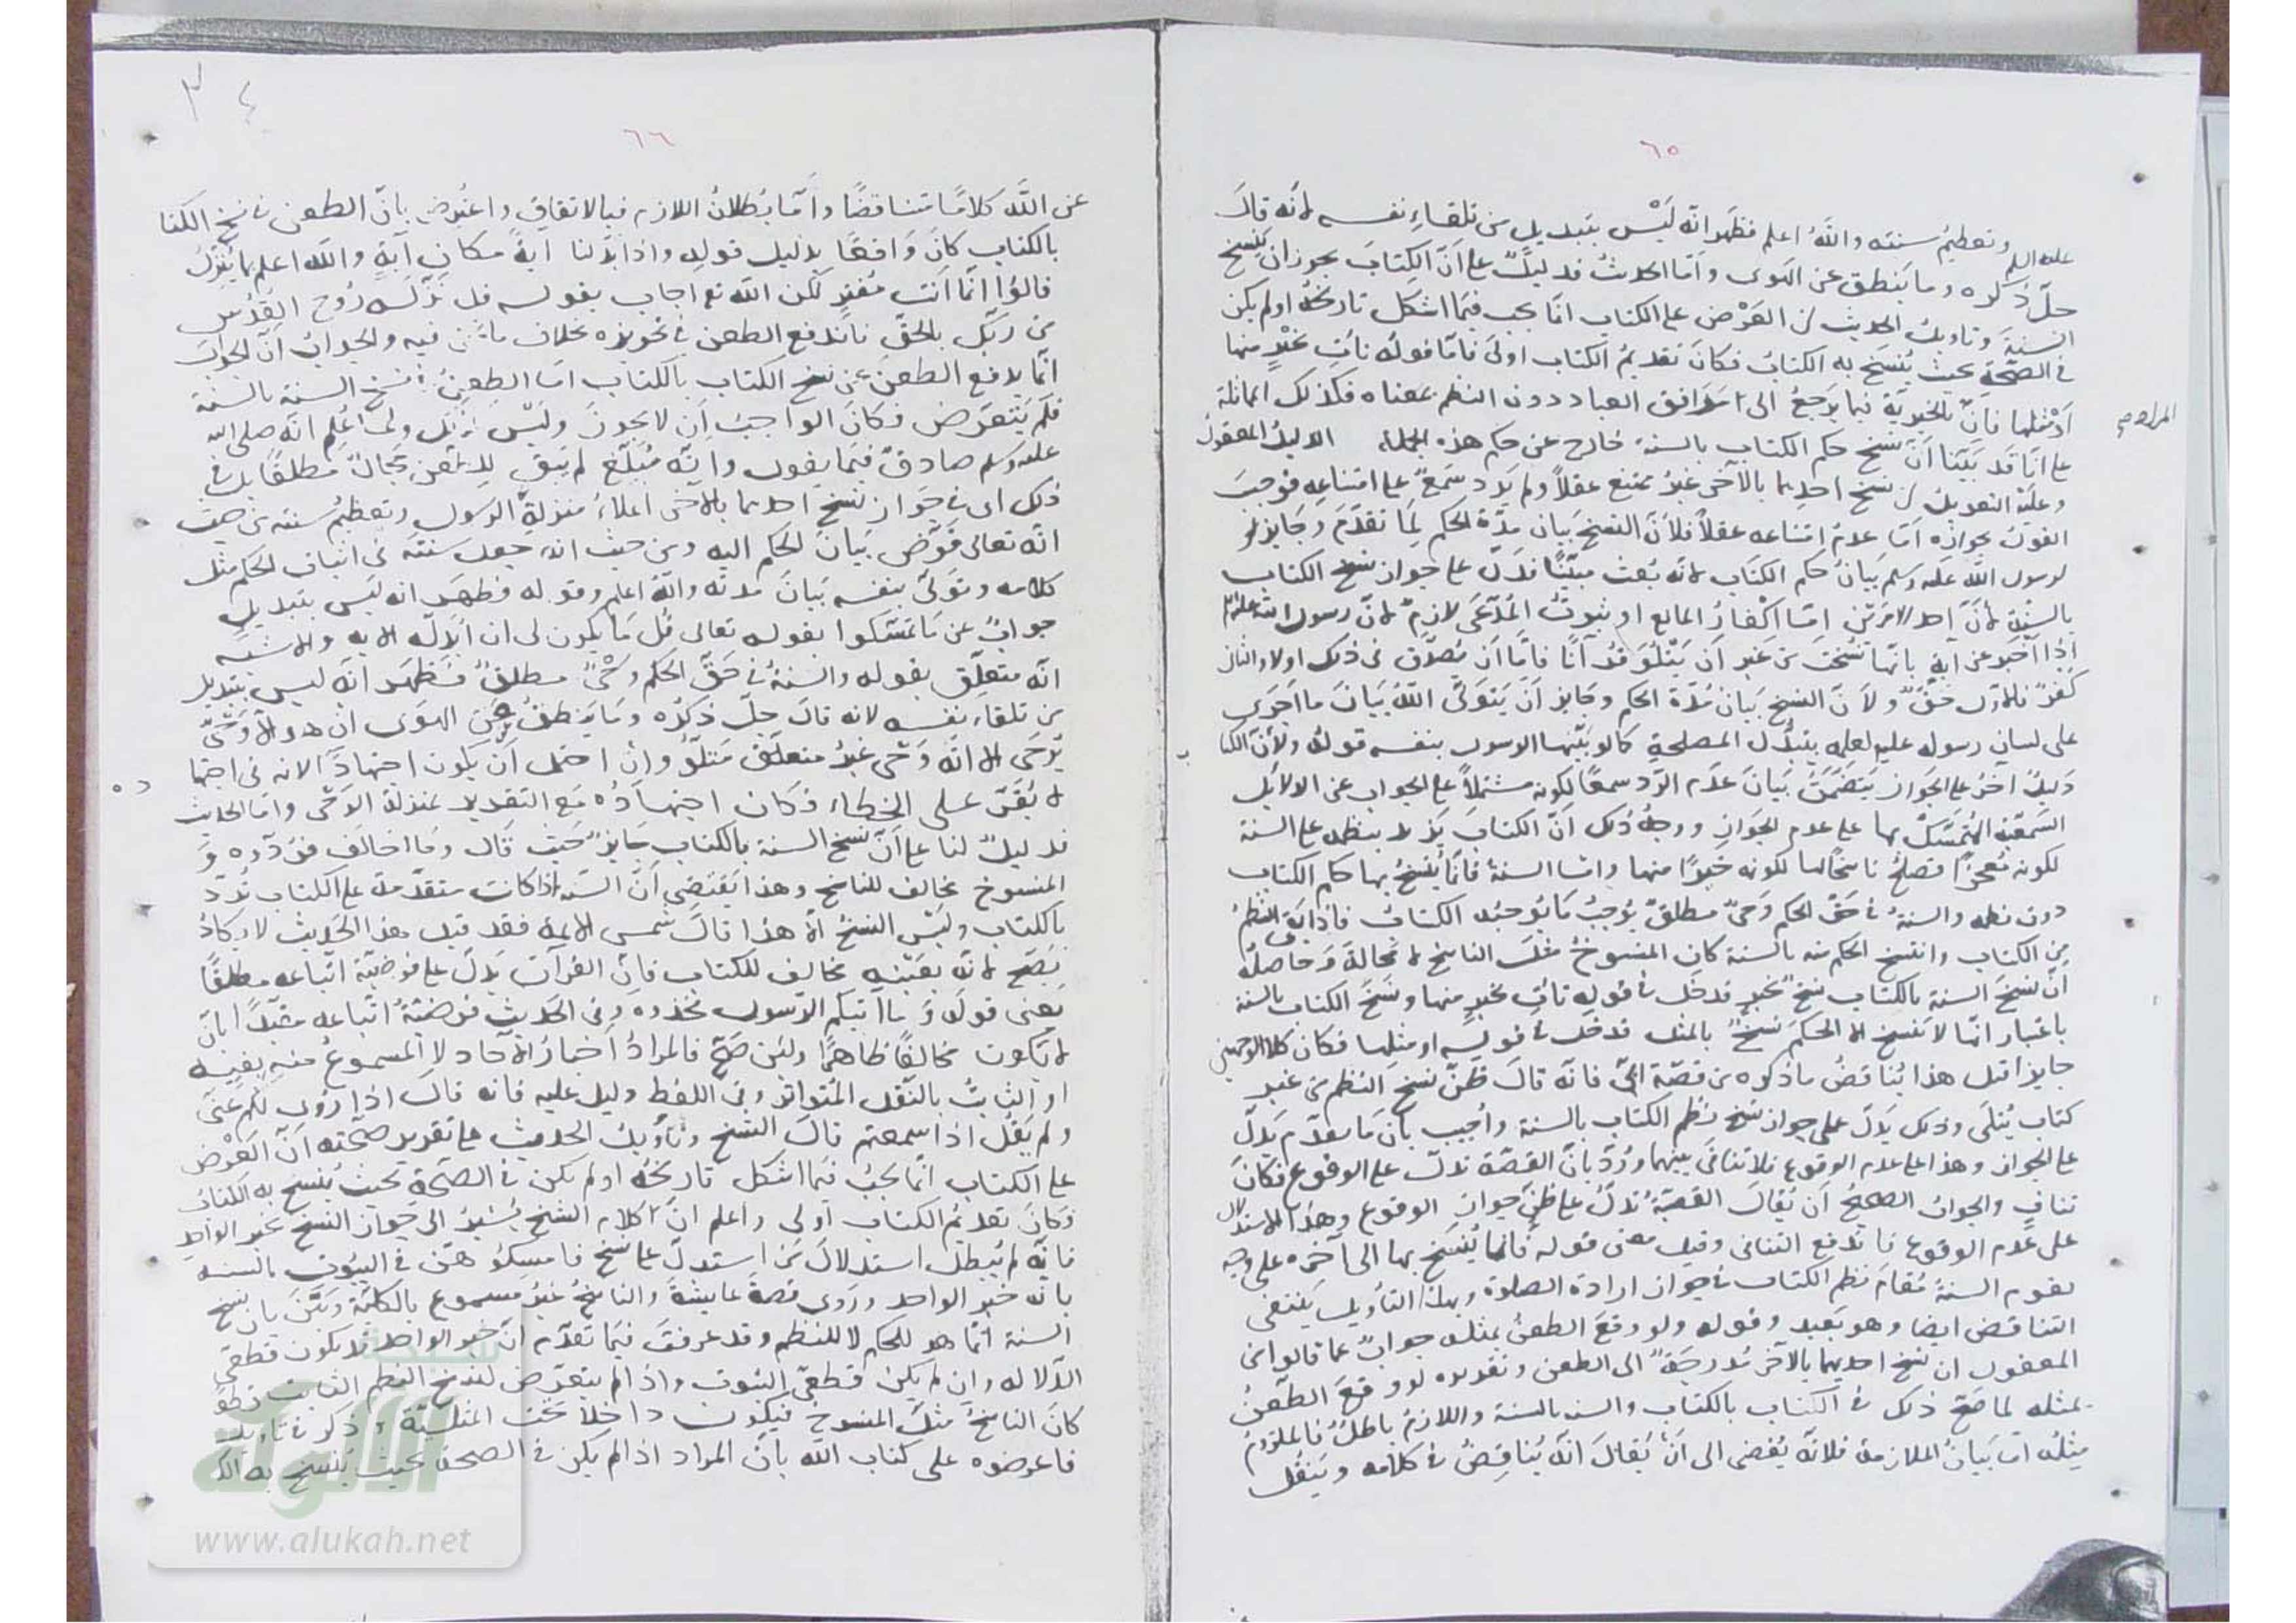 ٦٥
عليه السلم وتعظيم سنته والله اعلم فظهر انه ليس بتبديل من تلقاء نفسه لانه قال
جل ذكره وما ينطق عن الهوى واما الحديث فدليل على ان الكتاب يجوز ان ينسخ
السنة وتاويل الحديث ان العرض على الكتاب انما يجب فيما اشكل تاريخه او لم يكن
في الصحة بحيث ينسخ به الكتاب فكان تقديم الكتاب اولى فاما قوله نات بخير منها
او مثلها فان الخيرية فيما يرجع الى مرافق العباد دون النظم بمعناه فكذلك المماثلة
على انا قد بينا ان نسخ حكم الكتاب بالسنة خارج عن حكم هذه الجملة الدليل المعقول
وعليه التعويل ان نسخ احدهما بالآخر غير ممتنع عقلا ولم يرد سمع على امتناعه فوجب
القول بجوازه اما عدم امتناعه عقلا فلان النسخ بيان مدة الحكم لما تقدم وجايز
لرسول الله عليه وسلم بيان حكم الكتاب لانه بعث مبينا فدل على جواز نسخ الكتاب
بالسنة لان احد الامرين اما اكفار المانع او ثبوت المدعى لازم لان رسول الله عليه السلم
اذا اخبر عن آية بانها نسخت من غير ان يتلو قرآنا فاما ان يصدق في ذلك اولا والثاني
كفر فالاول حق ولان النسخ بيان مدة الحكم وجايز ان يتولى الله بيان ما اجرى
على لسان رسوله عليه لعلمه بتبدل المصلحة كما لو بينها الرسول بنفسه قوله ولان الكتا
ب
دليل اخر على الجواز يتضمن بيان عدم الرد سمعا لكونه مشتملا على الجواب عن الدلايل
السمعية المتمسك بها على عدم الجواز ووجه ذلك ان الكتاب يزيد بنظمه على السنة
لكونه معجزا فصلح ناسخا لها لكونه خيرا منها واما السنة فانما ينسخ بها حكم الكتاب
دون نظمه والسنة في حق الحكم وحي مطلق يوجب ما يوجبه الكتاب فاذا بقي النظم
من الكتاب وانتسخ الحكم منه بالسنة كان المنسوخ مثل الناسخ لا محالة وحاصله
ان نسخ السنة بالكتاب نسخ بخير فدخل في قوله نات بخير منها ونسخ الكتاب بالسنة
باعتبار انها لا تنسخ الا الحكم نسخ بالمثل فدخل في قوله او مثلها فكان كلا الوجهين
جايزا قيل هذا يناقض ما ذكره من قصة ابي فانه قال فظن نسخ النظم من غير
كتاب يتلى وذلك يدل على جواز نسخ نظم الكتاب بالسنة واجيب بان ما تقدم يدل
على الجواز وهذا على عدم الوقوع فلا تنافي بينهما ورد بان القصة تدل على الوقوع فكان
تناف والجواب الصحيح ان يقال القصة تدل على ظن جواز الوقوع وهذا الاستدلال
على عدم الوقوع فاندفع التنافي وقيل معنى قوله فانما ينسخ بها الى آخره على وجه
يقوم السنة مقام نظم الكتاب في جواز ارادة الصلوة وبهذا التأويل ينتفي
التناقض ايضا وهو بعيد وقوله ولو وقع الطعن بمثله جواب عما قالوا في
المعقول ان نسخ احديهما بالآخر مدرجة الى الطعن وتقديره لو وقع الطعن
بمثله لما صح ذلك في الكتاب بالكتاب والسنة بالسنة واللازم باطل فالملزوم
مثله اما بيان الملازمة فلانه يفضي الى ان يقال انه يناقض في كلامه وينقل
٦٦
عن الله كلاما متناقضا واما بطلان اللازم فبالاتفاق واعترض بان الطعن في نسخ الكتا
بالكتاب كان واقعا بدليل قوله واذا بدلنا آية مكان آية والله اعلم بما ينزل
قالوا انما انت مفتر لكن الله تع اجاب بقوله قل نزله روح القدس
من ربك بالحق فاندفع الطعن في تجويزه بخلاف ما نحن فيه والجواب ان الجواب
انما يدفع الطعن عن نسخ الكتاب بالكتاب اما الطعن في نسخ السنة بالسنة
فلم يتعرض وكان الواجب ان لا يجوز وليس كذلك ولما اعلم انه صلى الله
عليه وسلم صادق فيما يقول وانه مبلغ لم يبق للطعن مجال مطلقا بل في
ذلك اى في جواز نسخ احدهما بالاخر اعلاء منزلة الرسول وتعظيم سنته من حيث
انه تعالى فوض بيان الحكم اليه ومن حيث انه جعل سنته في اثبات الحكم مثل
كلامه وتولى بنفسه بيان مدته والله اعلم وقوله فظهر انه ليس بتبديل
جواب عن ما تمسكوا بقوله تعالى قل ما يكون لى ان ابدله الاية والاشبه
انه متعلق بقوله والسنة في حق الحكم وحي مطلق فظهر انه ليس بتبديل
من تلقاء نفسه لانه قال جل ذكره وما ينطق عن الهوى ان هو الا وحى
يوحى الا انه وحى غير متلو وان احتمل ان يكون اجتهادا الا انه في اجتها
ده
لا يقر على الخطاء فكان اجتهاده مع التقدير بمنزلة الوحى واما الحديث
فدليل لنا على ان نسخ السنة بالكتاب جايز حيث قال وما خالف فردوه و
المنسوخ مخالف للناسخ وهذا يقتضى ان السنة اذا كانت متقدمة على الكتاب ترد
بالكتاب وليس النسخ الا هذا قال شمس الايمة فقد قيل هذا الحديث لا يكاد
يصح لانه بعينه مخالف للكتاب فان القرآن يدل على فرضية اتباعه مطلقا
يعنى قوله وما آتيكم الرسول فخذوه وفى الحديث فرضية اتباعه مقيدا بان
لا يكون مخالفا ظاهرا ولئن صح فالمراد اخبار الآحاد لا المسموع منه بعينه
او الثابت بالنقل المتواتر وفى اللفظ دليل عليه فانه قال اذا روى لكم عنى
ولم يقل اذا سمعتم قال الشيخ وتأويل الحديث على تقدير صحته ان العرض
على الكتاب انما يجب فيما اشكل تاريخه او لم يكن في الصحة بحيث ينسخ به الكتاب
وكان تقديم الكتاب اولى واعلم ان كلام الشيخ يشير الى جواز النسخ بخبر الواحد
فانه لم يبطل استدلال من استدل على نسخ فامسكوهن في البيوت بالسنة
بانه خبر الواحد وروى قصة عايشة والناسخ غير مسموع بالكلية وبين بان نسخ
السنة انما هو للحكم لا للنظم وقد عرفت فيما تقدم ان خبر الواحد قد يكون قطعى
الدلالة وان لم يكن قطعى الثبوت واذا لم يتعرض لنسخ النظم الثابت قطعا
كان الناسخ مثل المنسوخ فيكون داخلا تحت المثلية وذكر في تاويل
فاعرضوه على كتاب الله بان المراد اذا لم يكن في الصحة بحيث ينسخ به الك
www.alukah.net